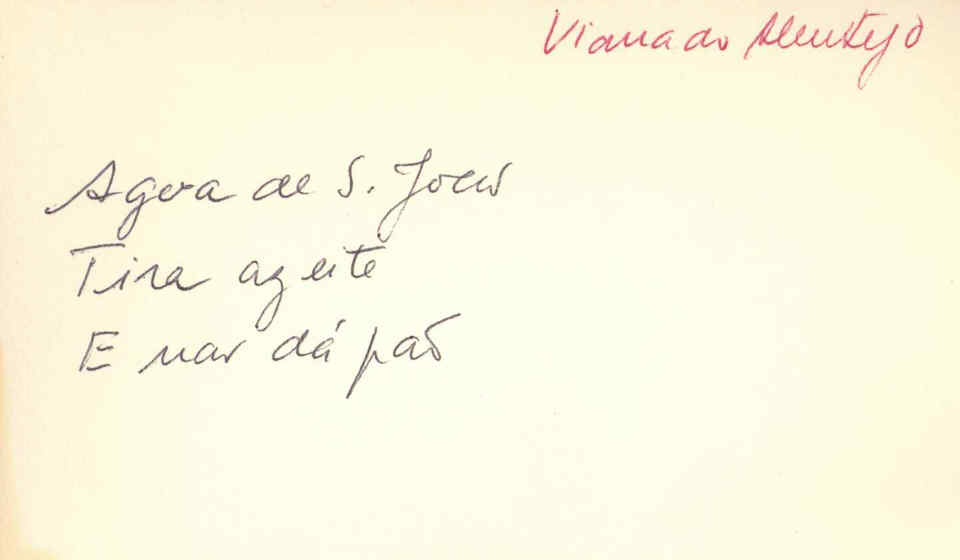 Viana do Alentejo
Agua de S. Joao
Tira azeite
E nao dá pão